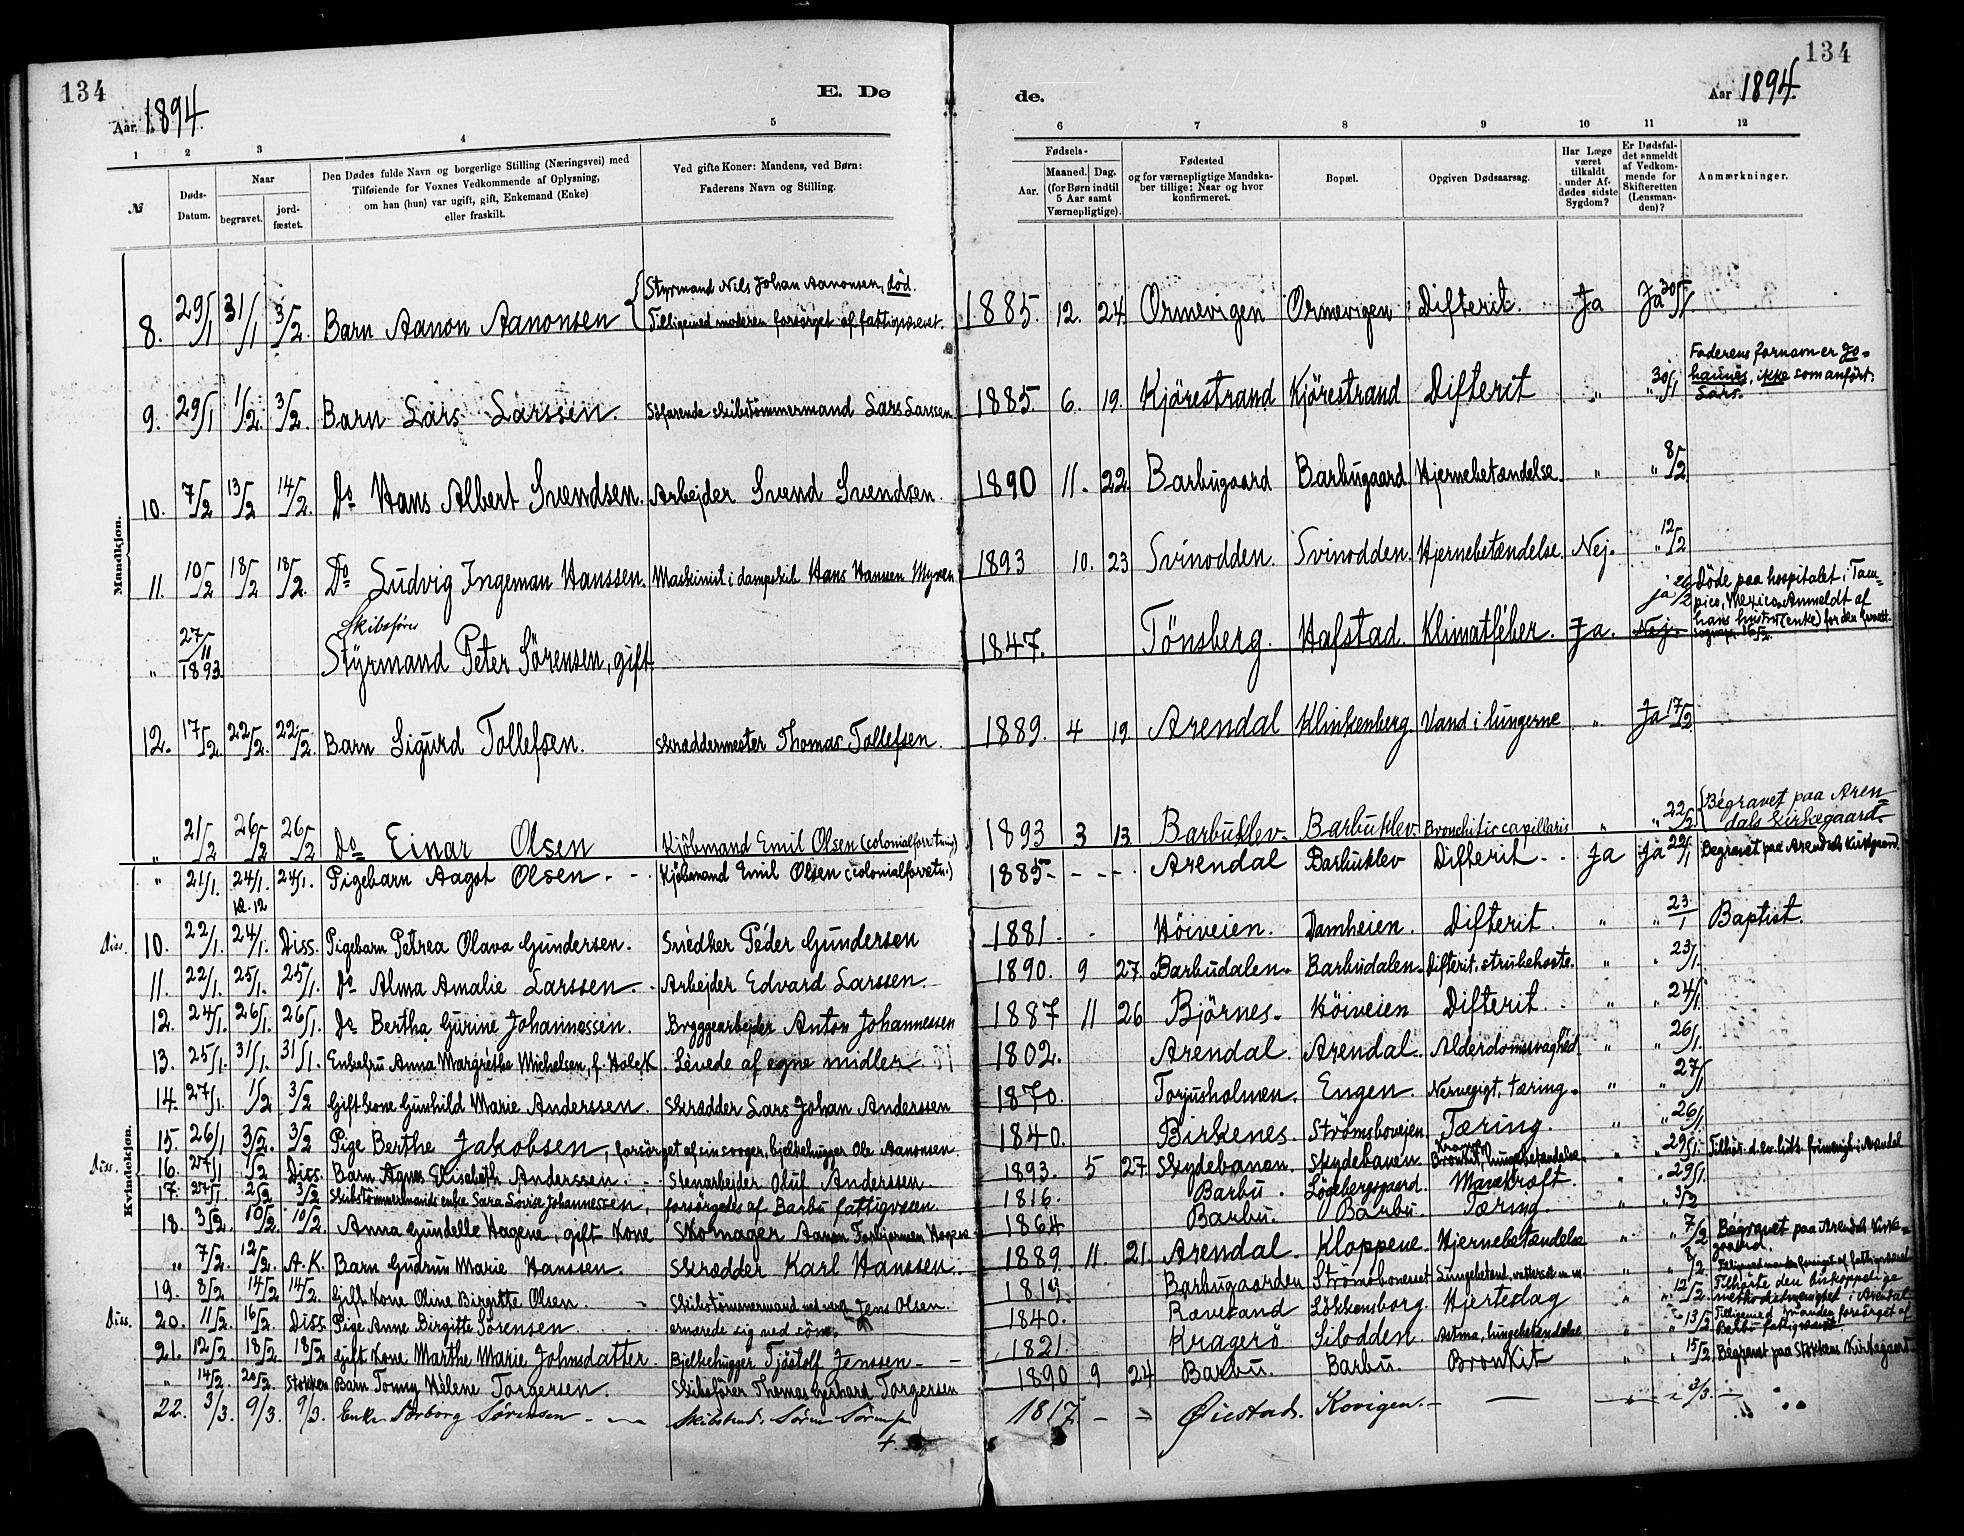 134
134
Aar 1894.
E. Dø
de.
Aar 1894.
1 2 3 4 5 6 7 8 9 10 11 12
№
Døds-Datum.
Naar
begravet.
jordfæstet.
Den Dødes fulde Navn og borgerlige Stilling (Næringsvei) med
Tilføiende for Voxnes Vedkommende af Oplysning,
om han (hun) var ugift, gift, Enkemand (Enke)
eller fraskilt.
Ved gifte Koner: Mandens, ved Børn:
Faderens Navn og Stilling.
Fødsels-
Aar.
Maaned. Dag.
(for Børn indtil
5 Aar samt
Værnepligtige).
Fødested
og for værnepligtige Mandska-
ber tillige: Naar og hvor
konfirmeret.
Bopæl.
Opgiven Dødsaarsag.
Har Læge
været
tilkaldt
under Af-
dødes sidste
Sygdom?
Er Dødsfal-
det anmeldt
af Vedkom-
mende for
Skifteretten
(Lensman-
den)?
Anmærkninger.
Mandkjøn.
8. 29/1 31/1 3/2. Barn Aanon Aanonsen { Styrmand Nils Johan Aanonsen, død. Tilligemed moderen forsørget af fattigvæsenet. 1885. 12. 24. Ormevigen Ormevigen Difterit. Ja Ja 30/1.
9. 29/1 1/2 3/2. Barn Lars Larssen. Söfarende skibstömmermand Lars Larssen 1885. 6. 19. Kjörestrand Kjörestrand Difterit " " 30/1 Faderens fornavn er Jo-
hannes, ikke som anført:
Lars.
10. 7/2 13/2 14/2. Do Hans Albert Svendsen. Arbejder Svend Svendsen. 1890 11. 22. Barbugaard Barbugaard Hjernebetændelse. " " 8/2
11. 10/2 18/2 18/2. Do Ludvig Ingeman Hanssen. Maskinist i dampskib Hans Hanssen Myren 1893 10. 23 Svinodden. Svinodden. Hjernebetændelse. Nej. " 12/2
" 27/11 1893. Skibsförer
Styrmand Peter Sörensen, gift 1847. Tönsberg. Hafstad. Klimatféber. Ja. Nej. ja 26/2 Döde paa hospitalet i Tam-
pico, Mexico. Anmeldt af
hans hustru (enke) for den
12. 17/2. 22/2. 22/2. Barn Sigurd Tollefsen. Skræddermester Thomas Tollefsen. 1889. 4 19. Arendal Klinkenberg. Vand i lungerne " Ja 17/2.
" 21/2 26/2 26/2 Do Einar Olsen Kjöbmand Emil Olsen (colonialforretning) 1893 3 13. Barbuklev. Barbuklev. Bronchitis capillaris " " 22/2 { Begravet paa Aren-
dals kirkegaard.
Kvindekjøn.
" 21/1. 24/1. kl. 12 24/1. Pigebarn Aagot Olsen - - Kjöbmand Emil Olsen (colonialforretn.) 1885 - - - - Arendal Barbuklev Difterit - - Ja Ja 22/1 Begravet paa Arendals Kirkegaard.
Diss. 10. 22/1. 24/1. Diss. Pigebarn Petrea Olava Gundersen. Snedker Peder Gundersen 1881. - Höiveien. Damheien. Difterit. " " 23/1 Baptist.
11. 22/1. 25/1. 25/1. Do Alma Amalie Larssen. - Arbejder Edvard Larssen. 1890. 9 27. Barbudalen. Barbudalen. Difterit, strubehoste. " " 23/1.
12. 24/1. 26/1. 26/1. Do Bertha Gurine Johannessen. Bryggearbejder Anton Johannessen 1887 11 26 Björnes. Höiveien Difterit. - " " 24/1
13. 25/1. 31/1. 31/1. Enkefru Anna Margrethe Michelsen, f. Holck. Levede af egne midler 1802. Arendal. Arendal. Alderdomssvaghed " " 26/1.
14. 27/1. 1/2 3/2 Gift kone Gunhild Marie Anderssen. Skrædder Lars Johan Anderssen 1870. Torjusholmen. Engen. Nervegigt, tæring. " " 27/1
15. 26/1 3/2. 3/2 Pige Berthe Jakobsen, forsörget af sin svoger, bjelkehugger Ole Aanonsen. 1840. Birkenes. Strömsboveien Tæring. " " 26/1.
Diss. 16. 27/1 1/2 Diss. Barn Agnes Elisabeth Anderssen. - Stenarbejder Oluf Anderssen. 1893. 5 27. Skydebanen. Skydebanen. Bronkit, lungebetændelse. " " 29/1. Tilhör. d. ev. luth. frimenigh. i Arendal
17. 27/1. 2/2 3/2 Skibstömmermands enke Sara Lovise Johannessen, forsörgedes af Barbu fattigvæsen. 1816. Barbu. Lögebergsgaard. Mavekræft. " " 29/1.
18. 3/2. 10/2. 10/2. Anna Gundelle Hagene, gift Kone Skomager Aanon Hagene 1864 Barbu. Barbu. Tæring. " " 3/2
" 7/2. 12/2. A.K. Barn Gudrun Marie Hanssen. Skrædder Karl Hanssen. 1889. 11 21. Arendal. Kloppene. Hjernebetændelse " " 7/2 Begravet paa Arendals Kirke-
gaard.
19. 8/2 14/2 14/2. Gift Kone Oline Birgitte Olsen. - Skibstömmermand Jens Olsen. 1819. Barbugaarden Strömsbonesset " " 8/2 Tilligemed manden forsörget af fattigvæsenet
Diss. 20. 11/2. 16/2. Diss. Pige Anne Birgitte Sörensen ernærede sig ved söm. 1840. Rævesand Lökkensborg. Hjerteslag " " 12/2. Tilhörte den biskoppelige
methodistmenighet i Arendal
21. 12/2. 18/2. 18/2 Gift Kone Marthe Marie Johnsdatter. Bjelkehugger Tjöstolf Jenssen - - 1821. Kragerö Silodden. Astma, lungebetændelse " " 13/2. Tilligemed manden forsörget af
Barbu fattigvæsen
" 14/2. 20/2. Stokken Barn Tonny Helene Torgersen. Skibsförer Thomas Gerhard Torgersen 1890 9 24 Barbu. Barbu. Bronkit " " 15/2. Begravet paa Stokkens Kirkegaard
22. 3/3. 9/3. 9/3. Enke Sörensen - Sören 1817. - - Øiestad. Kovigen. - - " " 3/3.